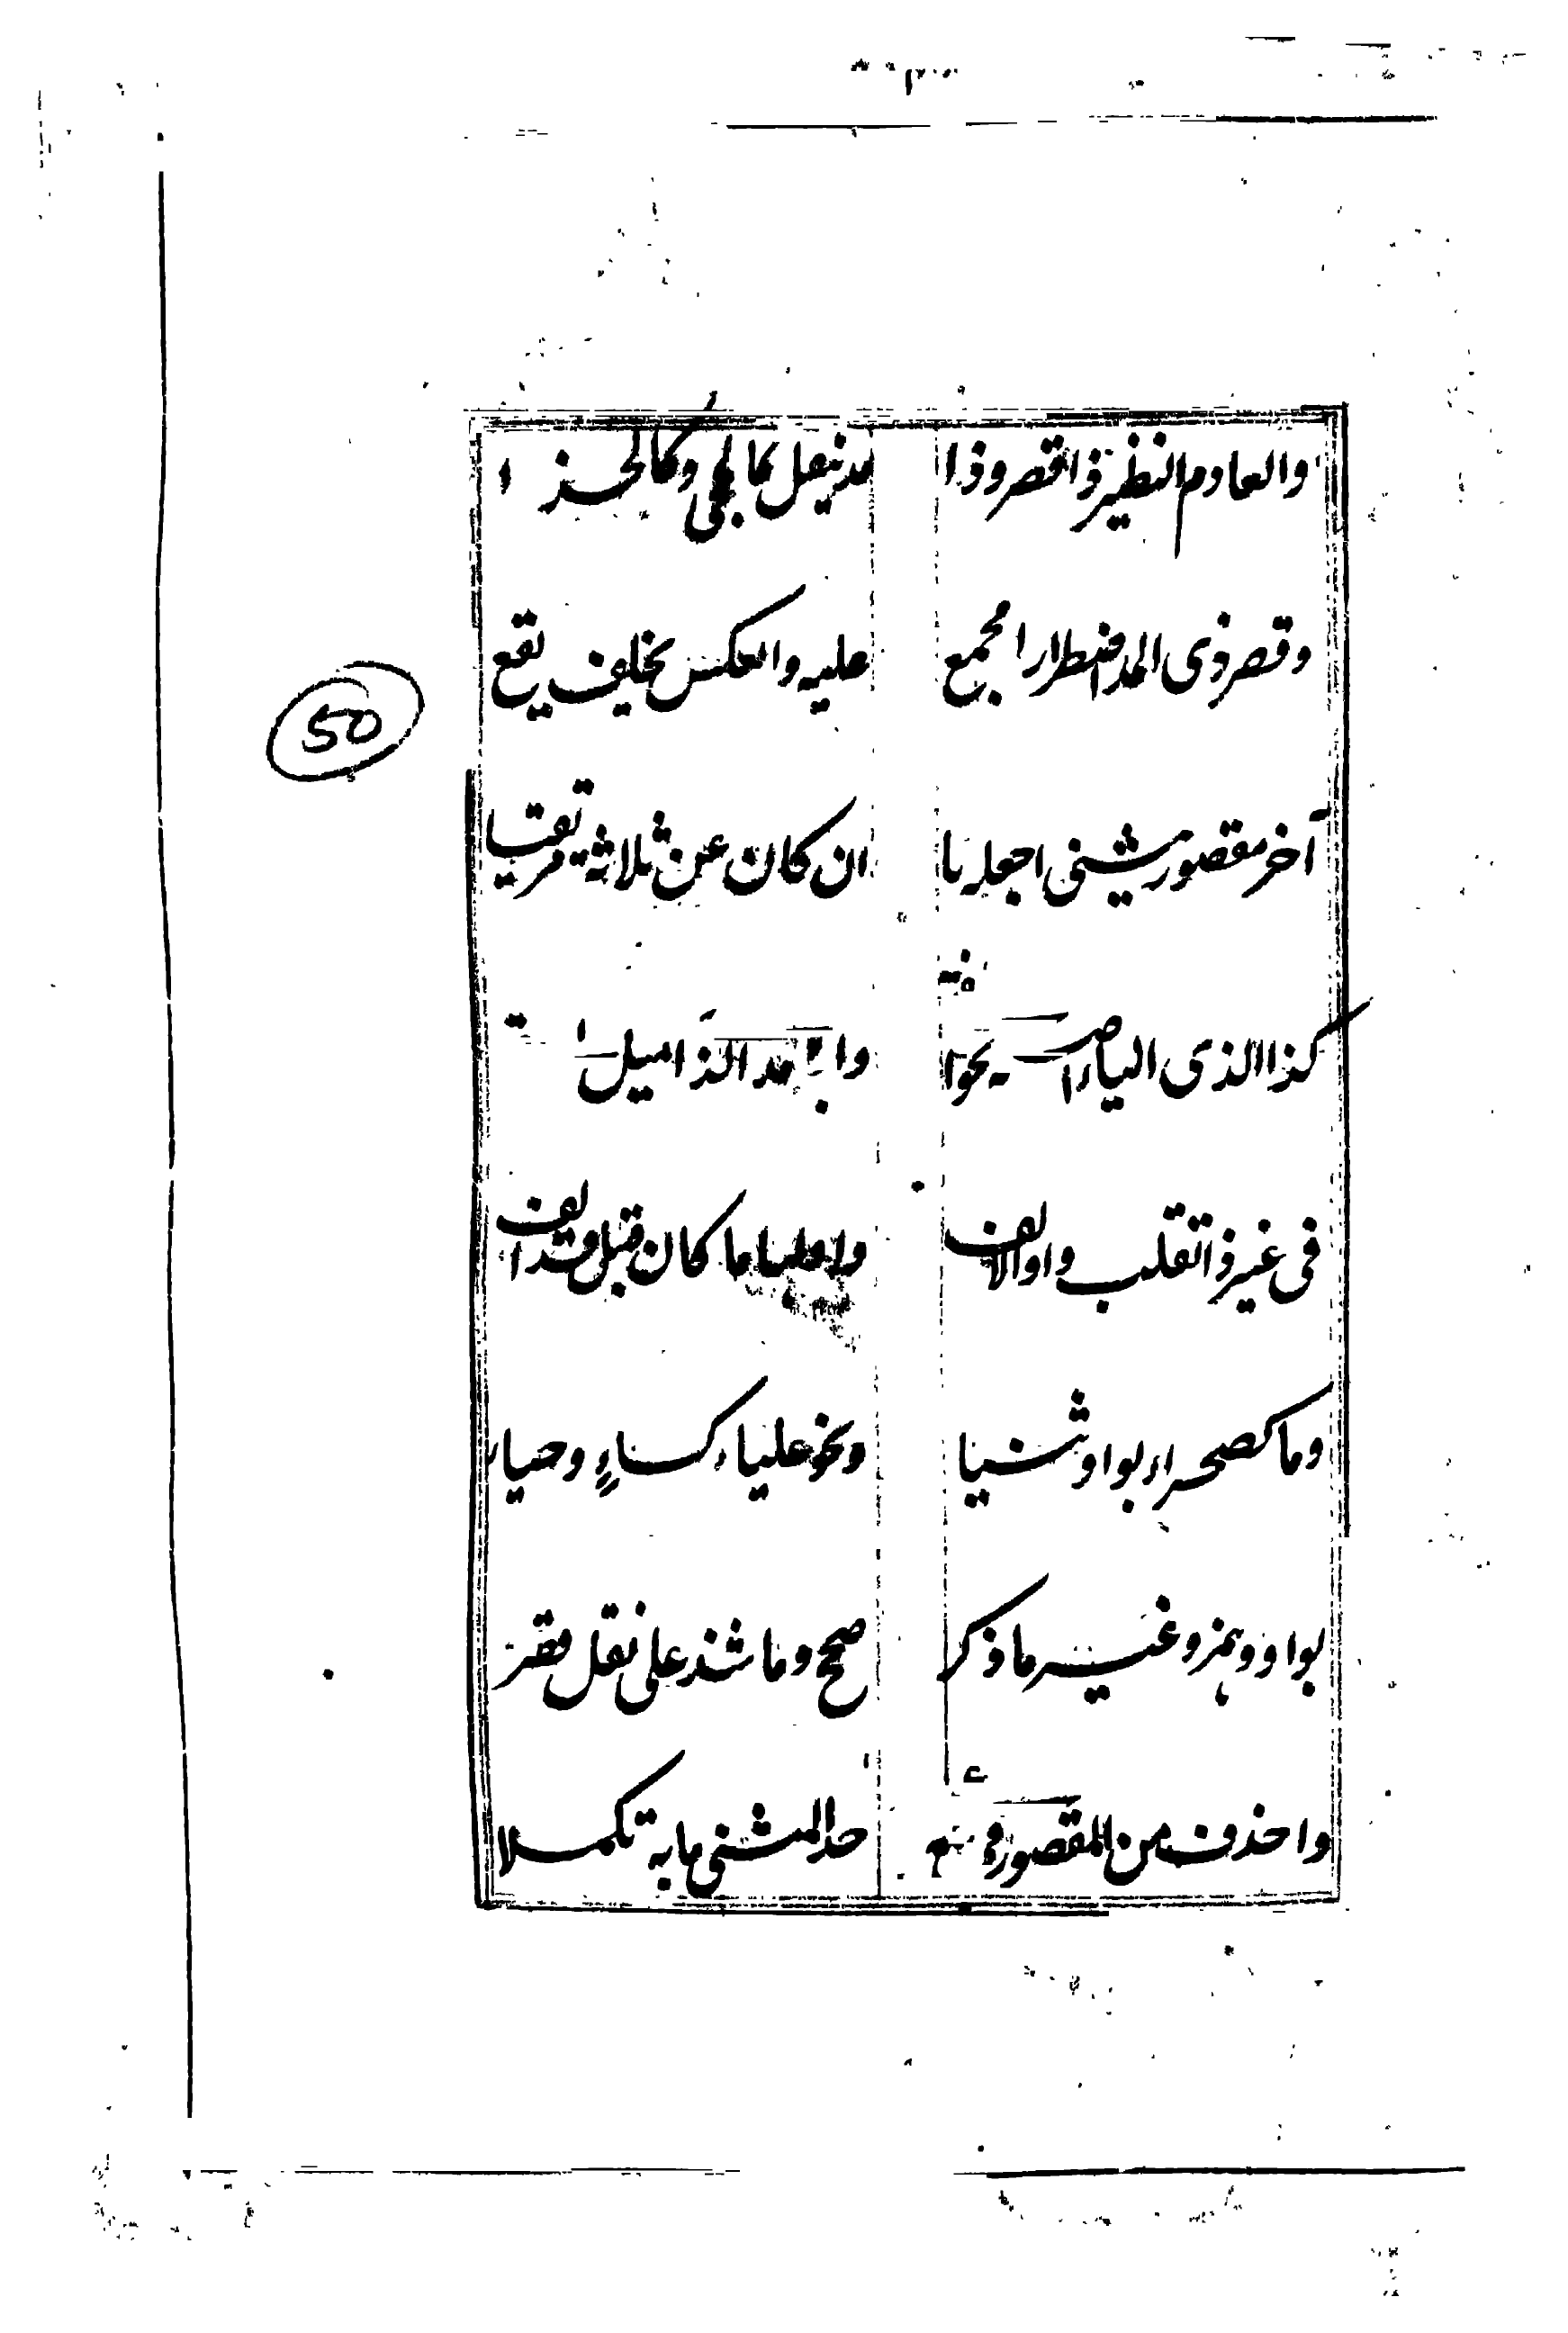 والعادم النظير ذا قصر وذا مد بنقل كالحجى وكالحذا
وقصر ذى المد اضطرارا مجمع عليه والعكس بخلف يقع
آخر مقصور تثنى اجعله يا ان كان عن ثلاثة مرتقيا
كذا الذى اليا اصله نحو الفتى والجامد الذى اميل
فى غير ذا تقلب واوا الالف واولها ما كان قبل قد الف
وما كصحراء بواو ثنيا ونحو علياء كساءٍ وحياء
بواو وهمز وغير ما ذكر صحح وما شذ على نقل قصر
واحذف من المقصور فى جمع حد المثنى ما به تكملا
50